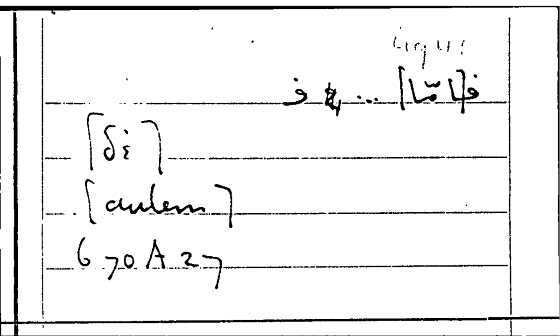 ف[اِمّا] ... ف
[δὲ]
[autem]
670A27